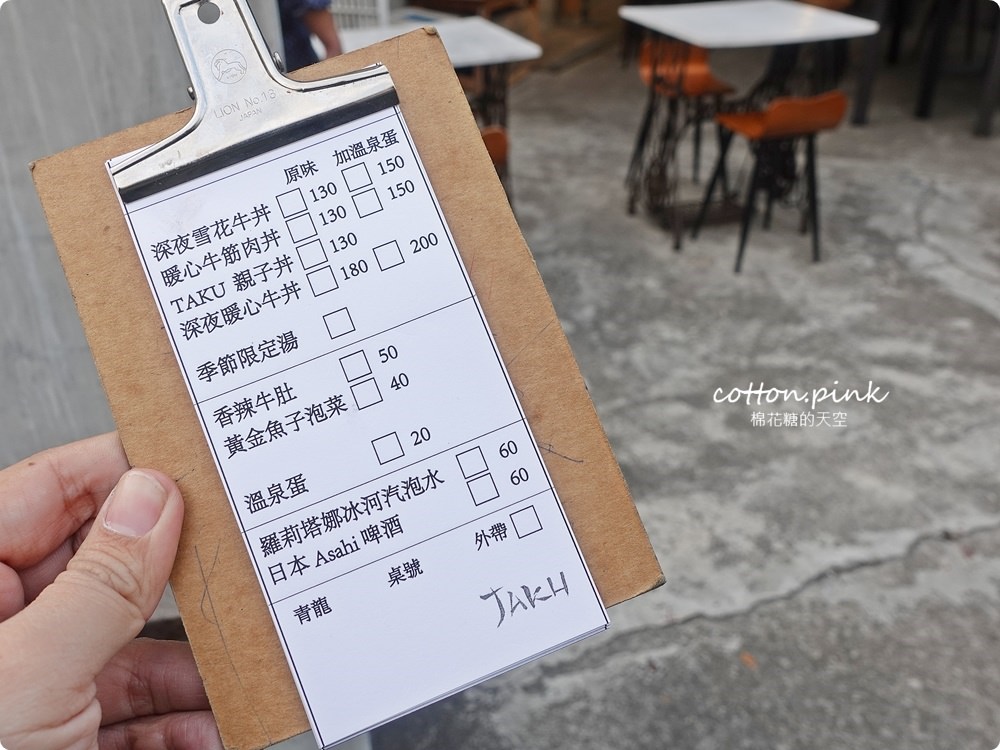 LION No.18
JAPAN
原味 加溫泉蛋
深夜雪花牛丼 130 150
暖心牛筋肉丼 130 150
TAKU 親子丼 130
深夜暖心牛丼 180 200
季節限定湯
香辣牛肚 50
黃金魚子泡菜 40
溫泉蛋 20
羅莉塔娜冰河汽泡水 60
日本 Asahi 啤酒 60
桌號 外帶
青龍
TAKU
cotton.pink
棉花糖的天空